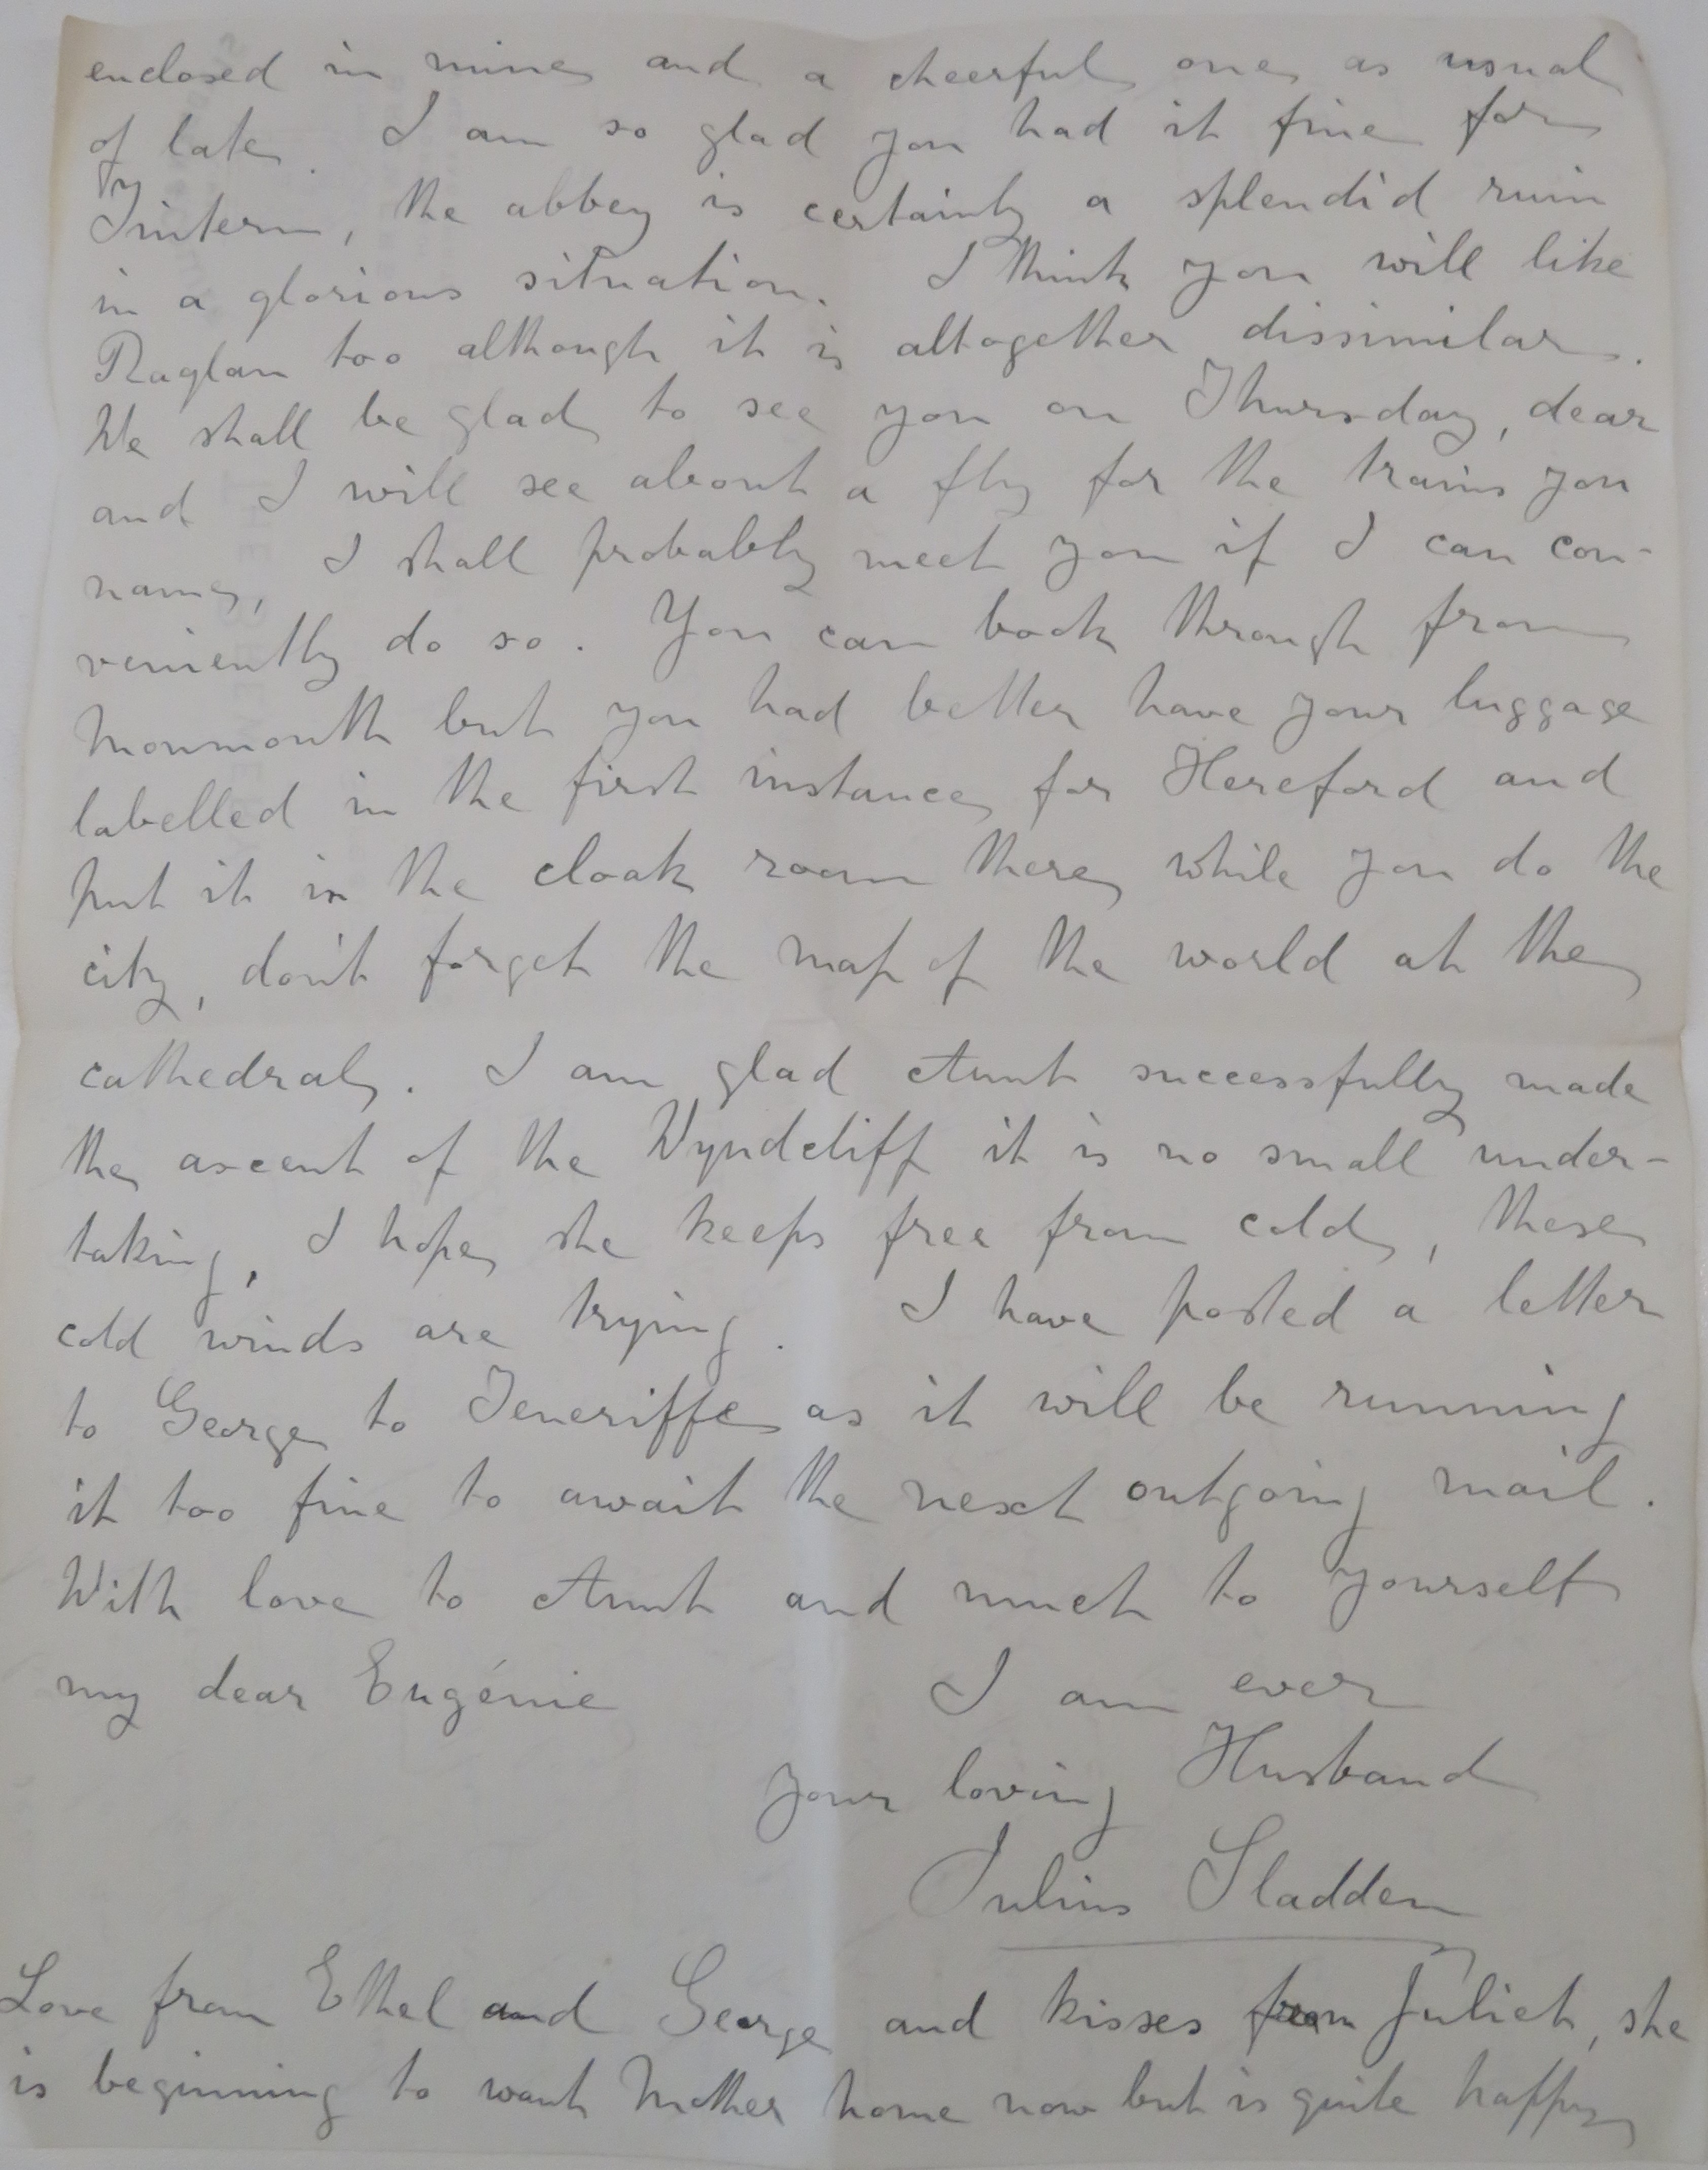 enclosed in mine and a cheerful one as usual
of late. I am so glad you had it fine for
Tintern, the abbey is certainly a splendid ruin
in a glorious situation. I think you will like
Raglan too although it is altogether dissimilar.
We shall be glad to see you on Thursday, dear
and I will see about a fly for the train you
name, I shall probably meet you if I can con-
veniently do so. You can book through from
Monmouth but you had better have your luggage
labelled in the first instance for Hereford and
put it in the cloak room there while you do the
city, don't forget the map of the world at the
cathedral. I am glad Aunt successfully made
the ascent of the Wyndcliff it is no small under-
taking, I hope she keeps free from cold, these
cold winds are trying. I have posted a letter
to George to Teneriffe as it will be running
it too fine to await the next outgoing mail.
With love to Aunt and much to yourself
my dear Eugénie I am ever
your loving Husband
Julius Sladden
Love from Ethel and George and kisses from Juliet, she
is beginning to want Mother home now but is quite happy